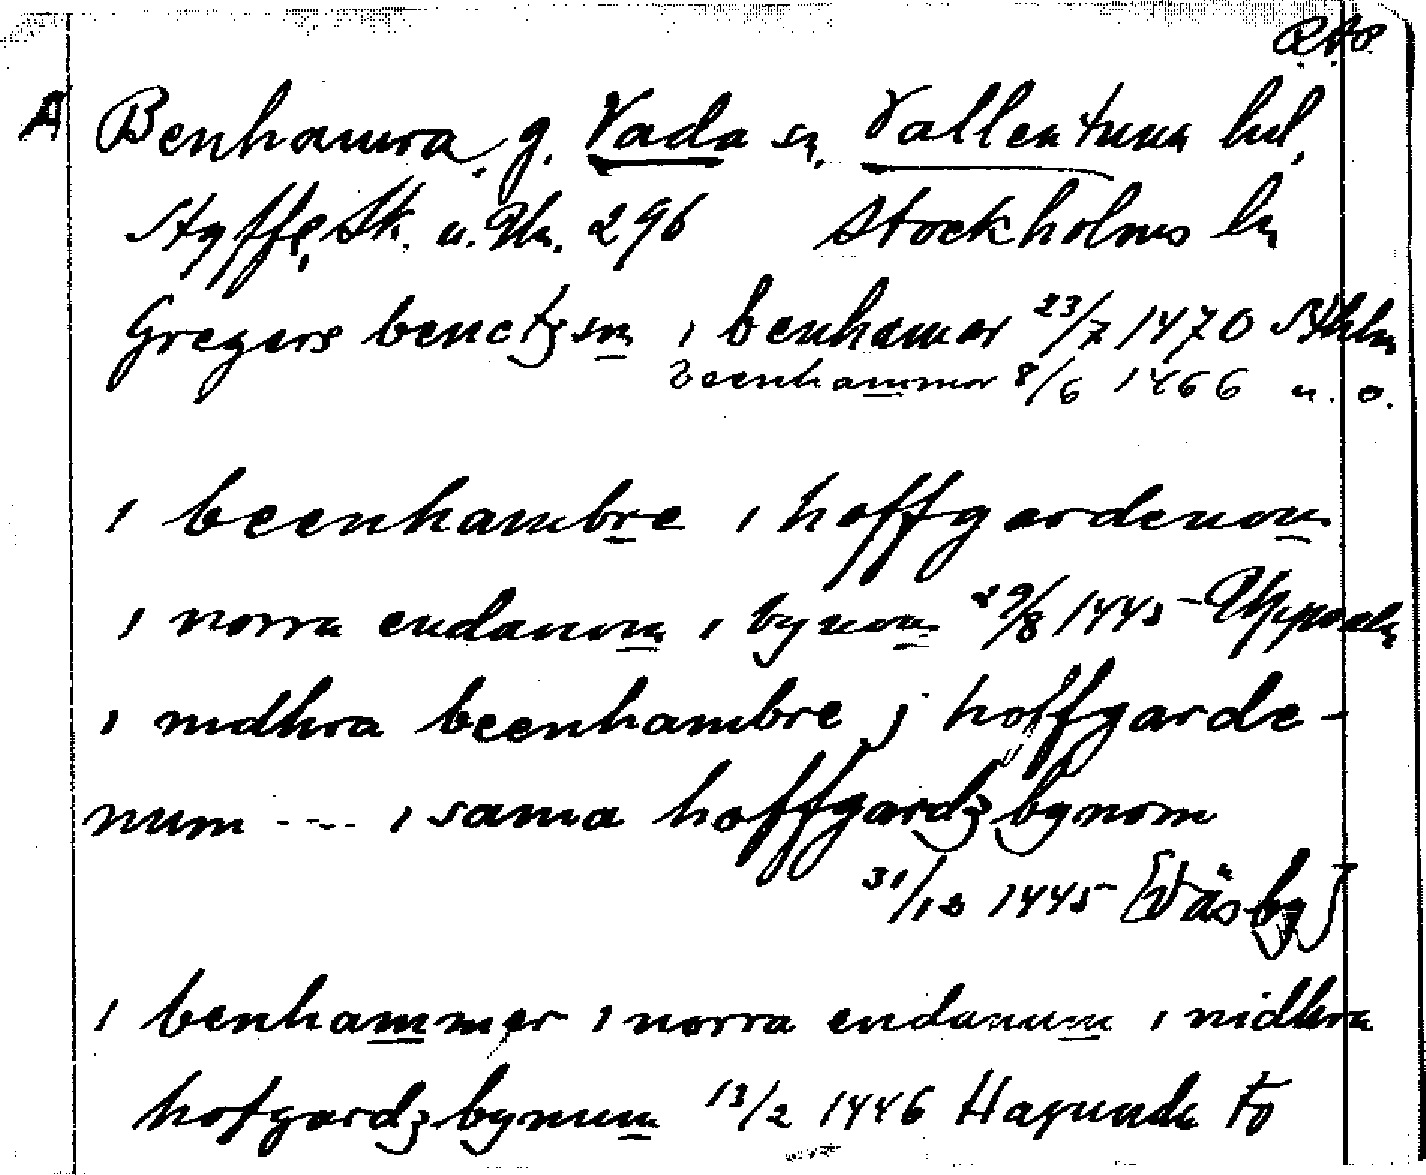 RAP
A Benhamra, g. Vada sn, Vallentuna hd,
Styffe, Sk. u. Un. 296 Stockholms ln
Gregers benctzsm i benhamar 23/7 1470 Sthlm
beenhammar 8/6 1466 u. o.
i beenhambre i hoffgardenom
i norra endanom i bynom 29/8 1445 Uppsala
i nidhra beenhambre j hoffgarde-
num ---- i sama hoffgardzbynom
31/12 1445 [Väsby]
i benhammer i norra endanum i nidhra
hofgardzbynum 13/2 1446 Hagunda to